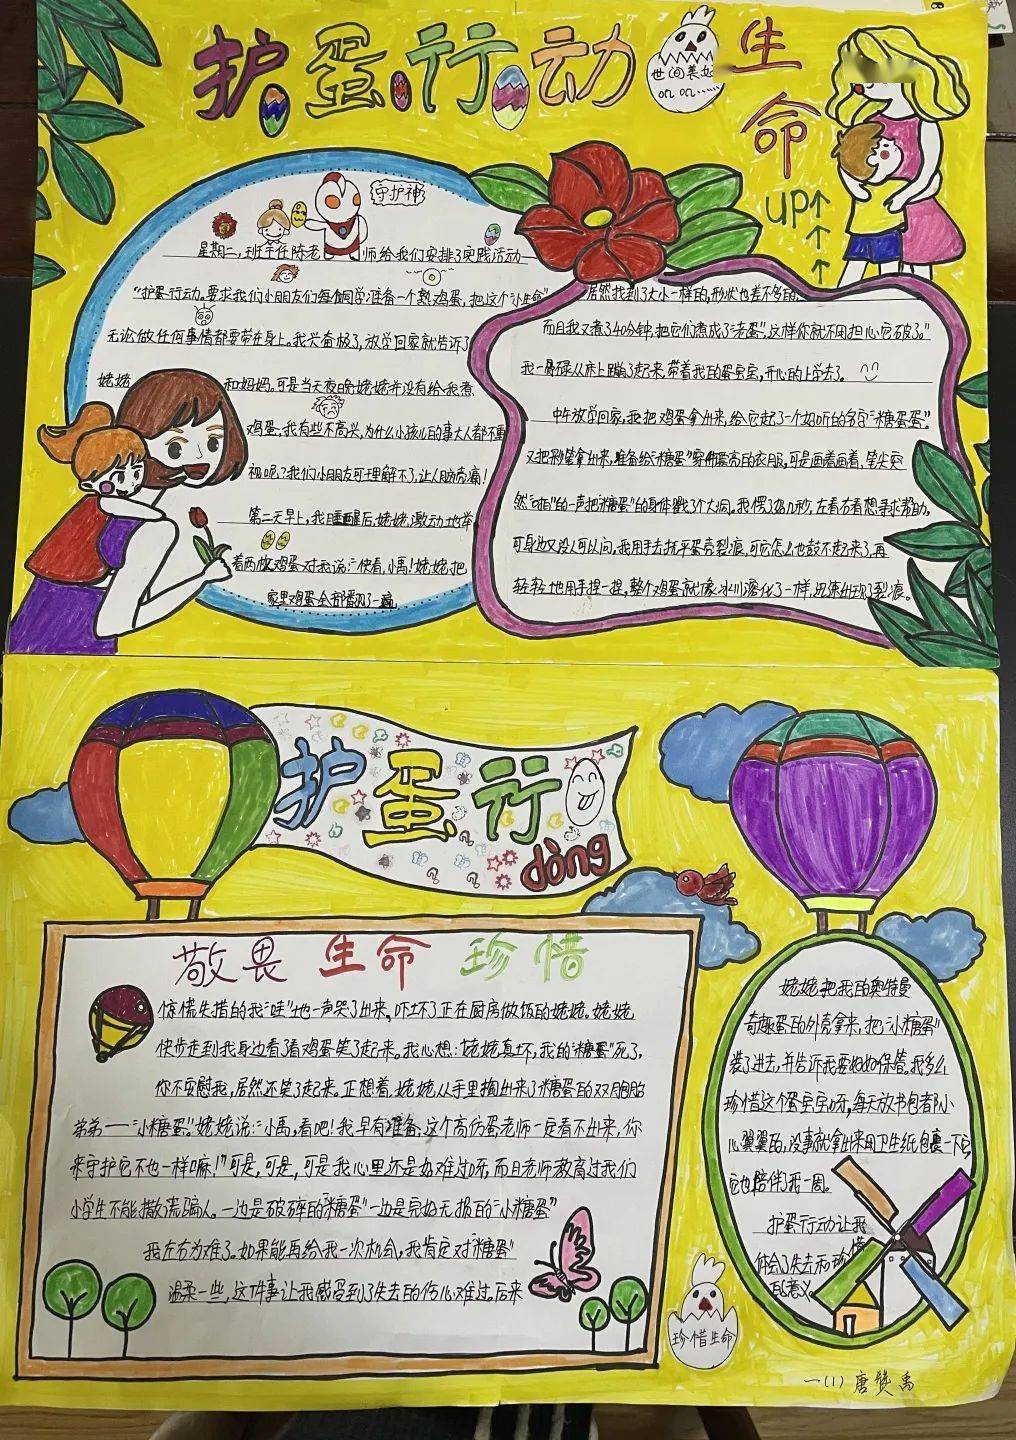 护蛋行动
世间美好
生
命
up
守护神
星期二,班主任陈老师给我们安排了实践活动
“护蛋行动,要求我们小朋友们每个同学准备一个熟鸡蛋,把这个“小生命”
无论做任何事情都要带在身上。我兴奋极了,放学回家就告诉了
姥姥和妈妈。可是当天夜晚姥姥并没有给我煮
鸡蛋,我有些不高兴,为什么小孩儿的事大人都不重
视呢?我们小朋友可理解不了,让人脑壳痛!
第二天早上,我睡醒后,姥姥激动地举
着两枚鸡蛋对我说:“快看,小禹!姥姥把
家里鸡蛋全部翻了一遍
居然找到了大小一样的,形状也差不多的,
而且我又煮了40分钟,把它们煮成了“老蛋”,这样你就不用担心它破了。”
我一骨碌从床上蹦了起来,带着我的蛋宝宝,开心的上学去了。
中午放学回家,我把鸡蛋拿出来,给它起了个好听的名字“糖蛋蛋”。
又把彩笔拿出来,准备给“糖蛋”穿件漂亮的衣服,可是画着画着,笔尖突
然“咔”的一声把“糖蛋”的身体戳了个大洞,我愣了好几秒,左看右看想寻求帮助,
可身边又没人可以问,我用手去抚平蛋壳裂痕,可它怎么也鼓不起来了,再
轻轻地用手捏一捏,整个鸡蛋就像冰川溶化了一样,迅速出现了裂痕。
护蛋行
dòng
敬畏生命珍惜
惊慌失措的我“哇”地一声哭了出来,吓坏了正在厨房做饭的姥姥。姥姥
快步走到我身边看了看鸡蛋笑了起来。我心想:姥姥真坏,我的“糖蛋”死了,
你不安慰我,居然还笑了起来。正想着,姥姥从手里掏出来了糖蛋的双胞胎
弟弟——“小糖蛋”。姥姥说:“小禹,看吧!我早有准备,这个高仿蛋老师一定看不出来,你
来守护它不也一样嘛!”可是,可是,可是我心里还是好难过呀,而且老师教育过我们
小学生不能撒谎骗人。一边是破碎的“糖蛋”一边是完好无损的“小糖蛋”
我左右为难了。如果能再给我一次机会,我肯定对“糖蛋”
温柔一些,这件事让我感受到了失去的伤心难过。后来
姥姥把我的奥特曼
奇趣蛋的外壳拿来,把“小糖蛋”
装了进去,并告诉我要好好保管。我多么
珍惜这个蛋宝宝呀,每天放书包都小
心翼翼的,没事就拿出来用卫生纸包裹一下它,
它也陪伴了我一周。
护蛋行动让我
体会了失去和珍惜
的意义。
珍惜生命
一(1)唐赞禹